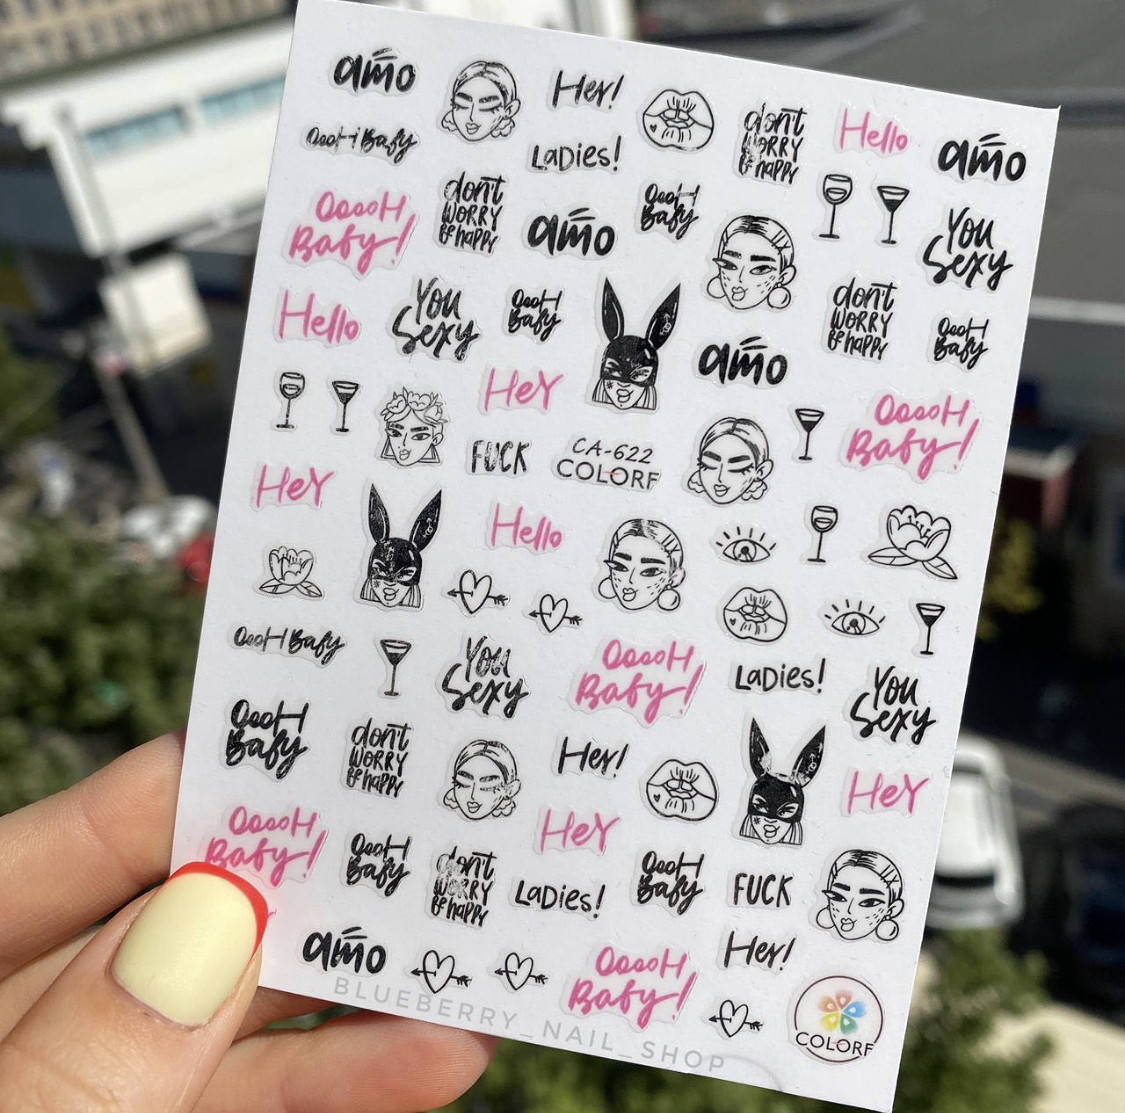 amo
Hey!
don't
WORRY
Be happy
Hello
amo
OooH Baby
LaDies!
OoooH
Baby!
don't
WORRY
Be happy
amo
OooH
Baby
You
Sexy
Hello
You
Sexy
OooH
Baby
don't
WORRY
Be happy
OooH
Baby
amo
HeY
OoooH
Baby!
FUCK
CA-622
COLORF
HeY
Hello
OooH Baby
You
Sexy
OoooH
Baby!
LaDies!
You
Sexy
OooH
Baby
don't
WORRY
Be happy
Hey!
HeY
OoooH
Baby!
HeY
OooH
Baby
don't
WORRY
Be happy
LaDies!
OooH
Baby
FUCK
amo
OoooH
Baby!
Hey!
COLORF
BLUEBERRY_NAIL_SHOP